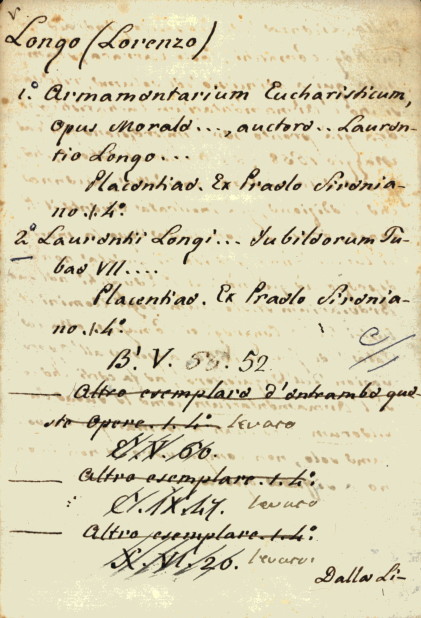 v.
Longo (Lorenzo)
1.º Armamentarium Eucharisticum,
opus Morale..., auctore.. Lauren-
tio Longo...
Placentiae. Ex Praelo Sironia-
no. 1. 4.º
2.º Laurentii Longi... Jubileorum Tu-
bae VII....
Placentiae. Ex Praelo Sironia-
no. 1. 4.º
B.' V. 52
Altro esemplare d'entrambe que-
ste opere. 1. 4.º levato
C. IV. 60.
Altro esemplare. 1. 4.º
C. IX. 47. levato
Altro esemplare. 1. 4.º
X. VI. 26. levato.
Dalla Li-